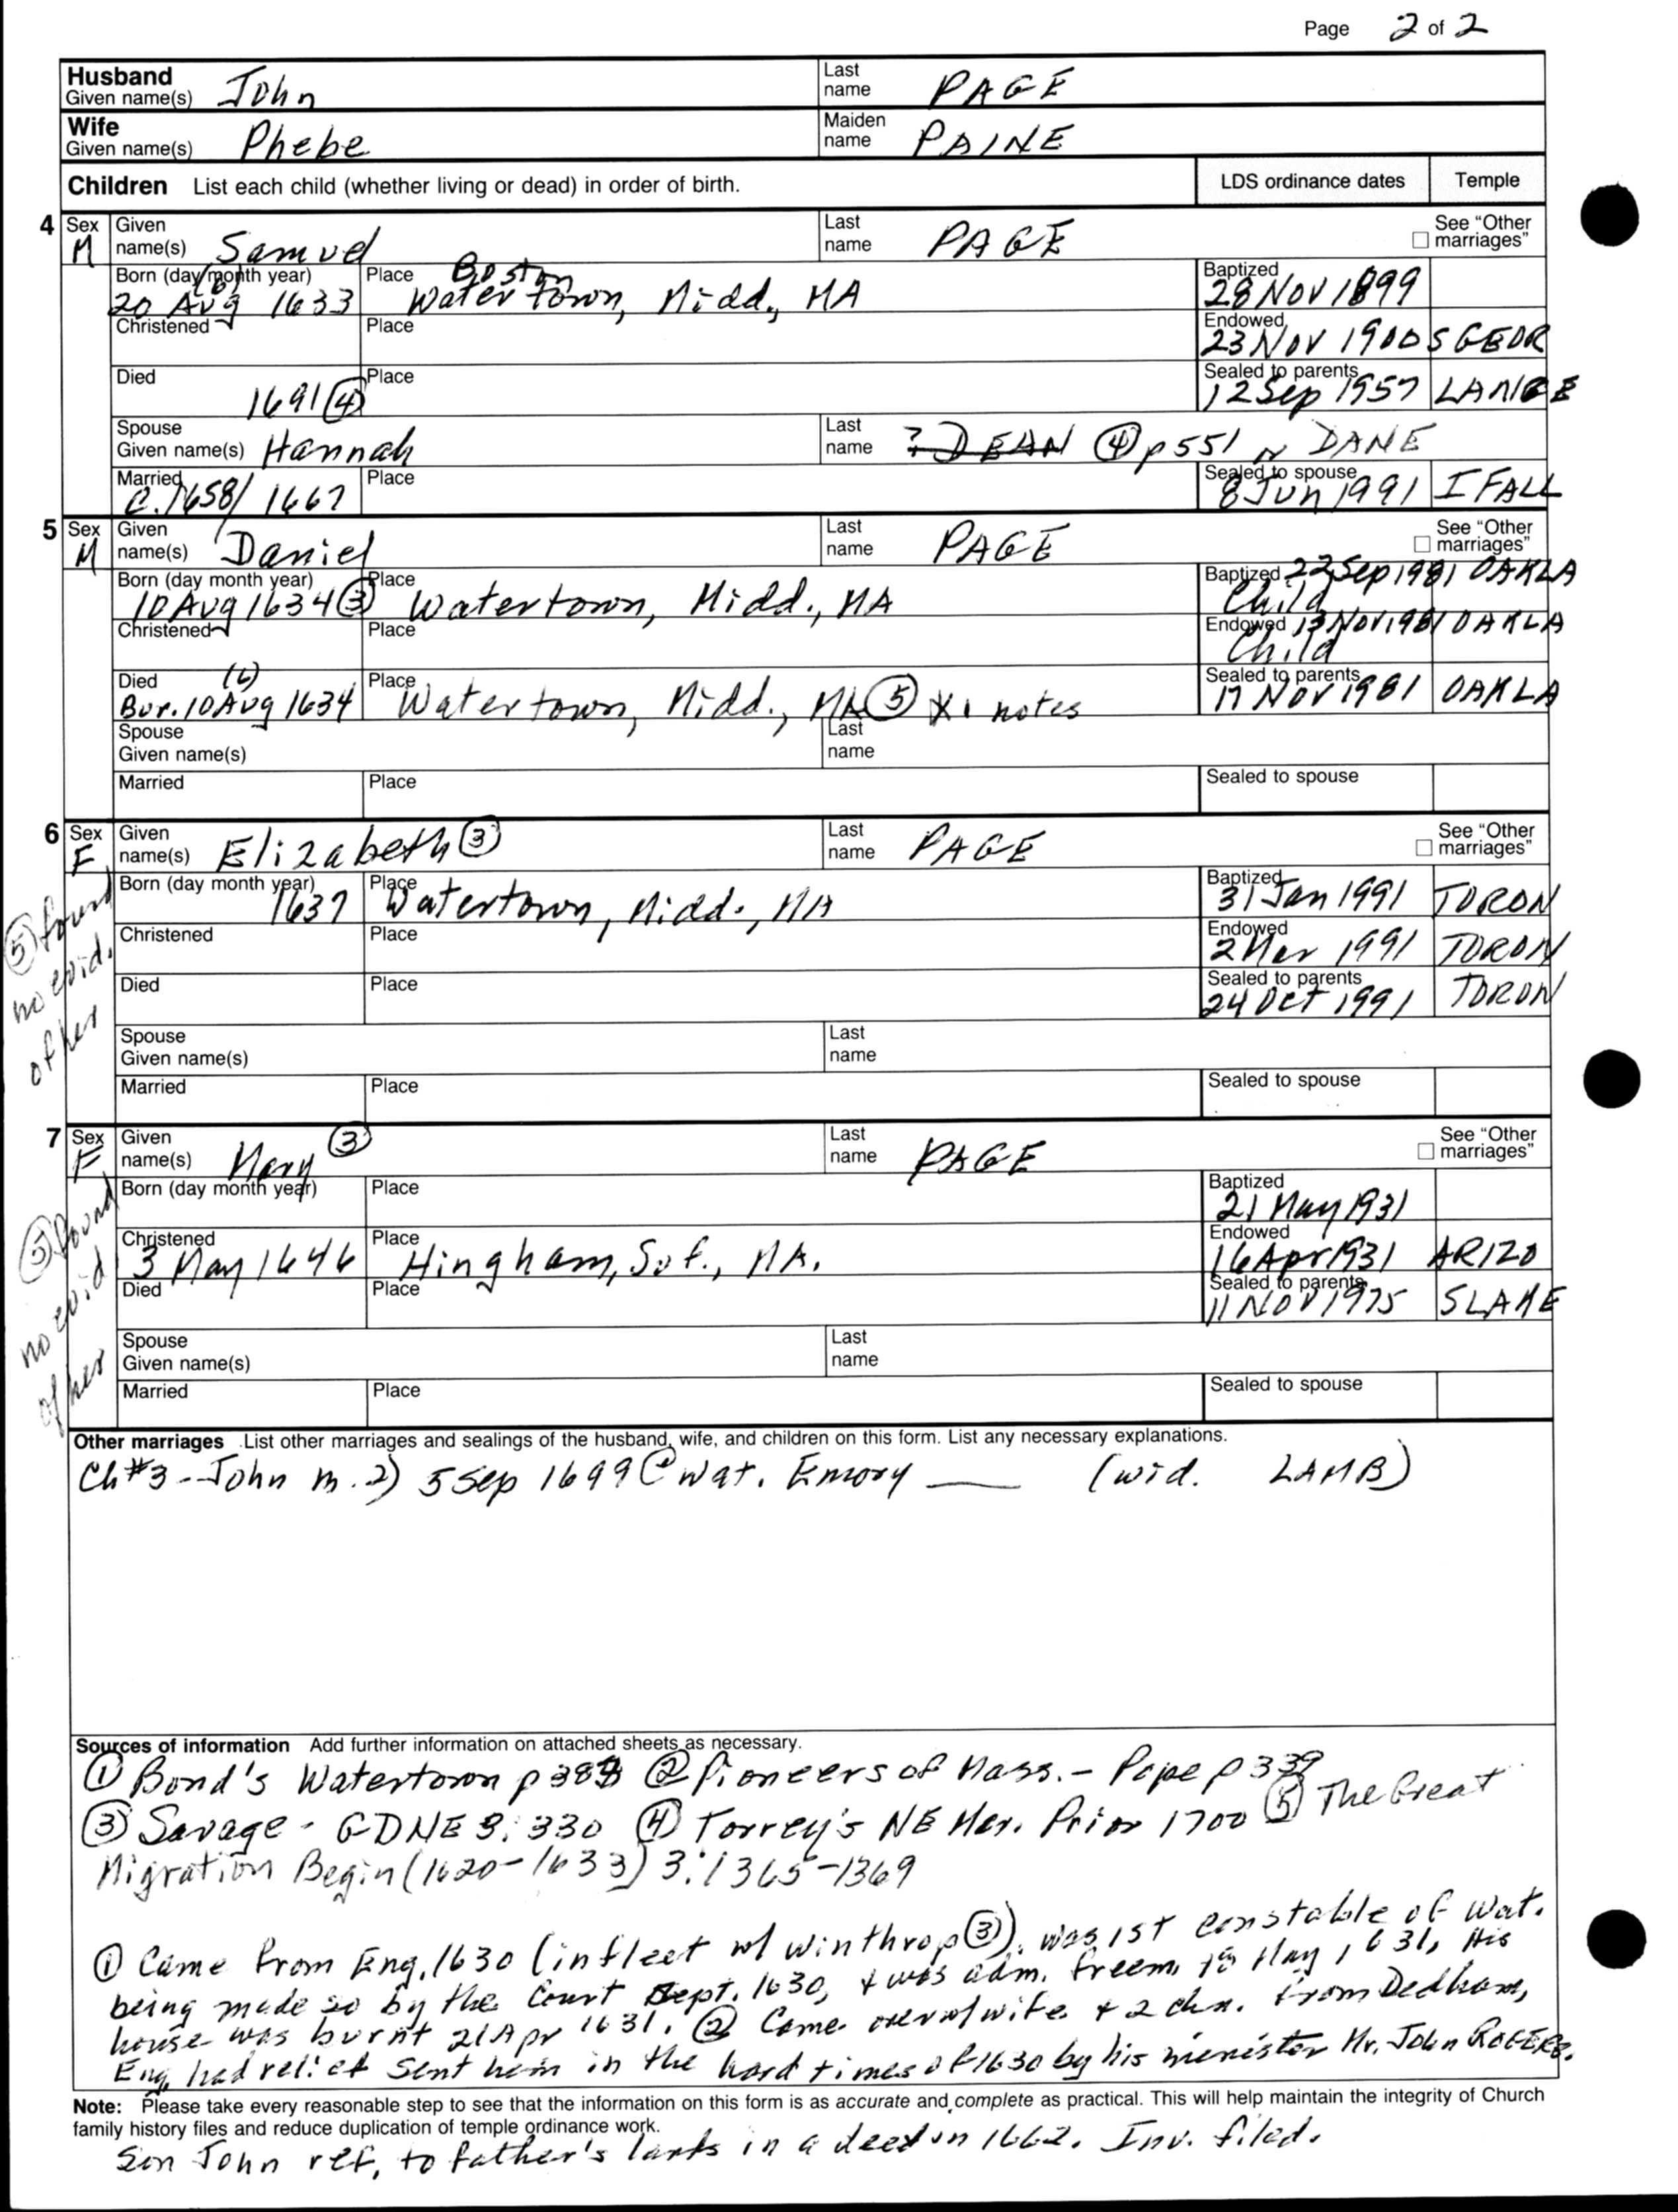 Page 2 of 2
Husband Given name(s) John Last name PAGE
Wife Given name(s) Phebe Maiden name PAINE
Children List each child (whether living or dead) in order of birth. LDS ordinance dates Temple
4 Sex M Given name(s) Samuel Last name PAGE See "Other marriages"
Born (day month year) (6) 20 Aug 1633 Place Boston Watertown, Midd., MA Baptized 28 Nov 1899
Christened Place Endowed 23 Nov 1900 SGEOR
Died 1691 (4) Place Sealed to parents 12 Sep 1957 LANGE
Spouse Given name(s) Hannah Last name ? DEAN (4) p551 DANE
Married c. 1658/1667 Place Sealed to spouse 8 Jun 1991 IFALL
5 Sex M Given name(s) Daniel Last name PAGE See "Other marriages"
Born (day month year) 10 Aug 1634 (3) Place Watertown, Midd., MA Baptized 22 Sep 1981 OAKLA Child
Christened Place Endowed 13 Nov 1981 OAKLA Child
Died (6) Bur. 10 Aug 1634 Place Watertown, Midd., MA (5) notes Sealed to parents 17 Nov 1981 OAKLA
Spouse Given name(s) Last name
Married Place Sealed to spouse
6 Sex F Given name(s) Elizabeth (3) Last name PAGE See "Other marriages"
Born (day month year) 1637 Place Watertown, Midd., MA Baptized 31 Jan 1991 TORON
Christened Place Endowed 2 Mar 1991 TORON
Died Place Sealed to parents 24 Oct 1991 TORON
(5) found no evid. of her
Spouse Given name(s) Last name
Married Place Sealed to spouse
7 Sex F Given name(s) Mary (3) Last name PAGE See "Other marriages"
Born (day month year) Place Baptized 21 May 1931
Christened 3 May 1646 Place Hingham, Suf., MA. Endowed 16 Apr 1931 ARIZO
Died Place Sealed to parents 11 NOV 1975 SLAKE
(5) found no evid of her
Spouse Given name(s) Last name
Married Place Sealed to spouse
Other marriages List other marriages and sealings of the husband, wife, and children on this form. List any necessary explanations.
Ch #3 - John m. 2) 5 Sep 1699 @ Wat. Emory ___ (wid. LAMB)
Sources of information Add further information on attached sheets as necessary.
(1) Bond's Watertown p 388 (2) Pioneers of Mass. - Pope p 339
(3) Savage - GDNE 3:330 (4) Torrey's NE Mar. Prior 1700 (5) The Great
Migration Begin (1620-1633) 3:1365-1369
(1) Came from Eng. 1630 (in fleet w/ Winthrop (3)). was 1st constable of Wat.
being made so by the Court Sept. 1630, & was adm. freem. 18 May 1631. His
house was burnt 21 Apr 1631. (2) Came over w/ wife & 2 chn. from Dedham,
Eng. had relief sent him in the hard times of 1630 by his minister Mr. John ROGERS.
Note: Please take every reasonable step to see that the information on this form is as accurate and complete as practical. This will help maintain the integrity of Church
family history files and reduce duplication of temple ordinance work.
Son John ref. to father's lands in a deed in 1662. Inv. filed.